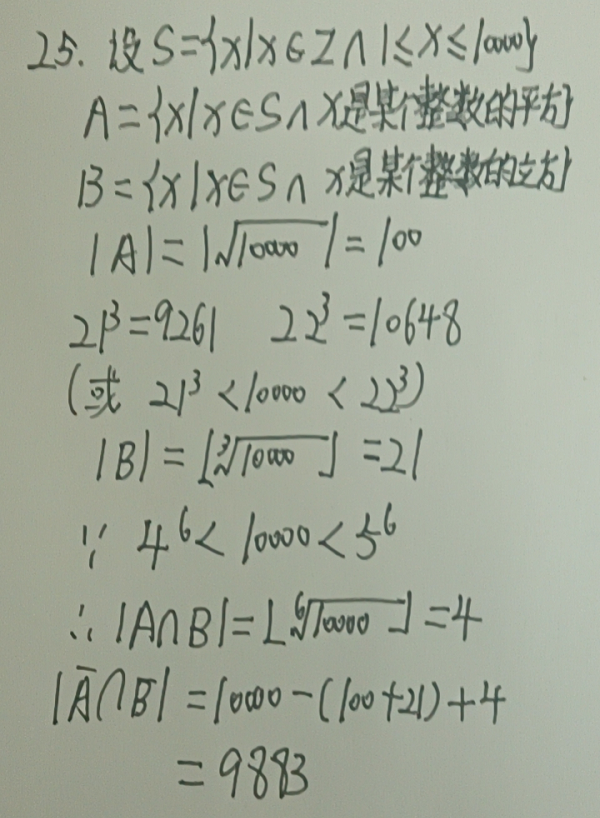 25. 设S={x|x∈Z∧1≤x≤10000}
A={x|x∈S∧x是某个整数的平方}
B={x|x∈S∧x是某个整数的立方}
|A|=|√10000|=100
21³=9261 22³=10648
(或 21³<10000<22³)
|B|=⌊∛10000⌋=21
∵ 4⁶<10000<5⁶
∴|A∩B|=⌊⁶√10000⌋=4
|A̅∩B̅|=10000-(100+21)+4
=9883